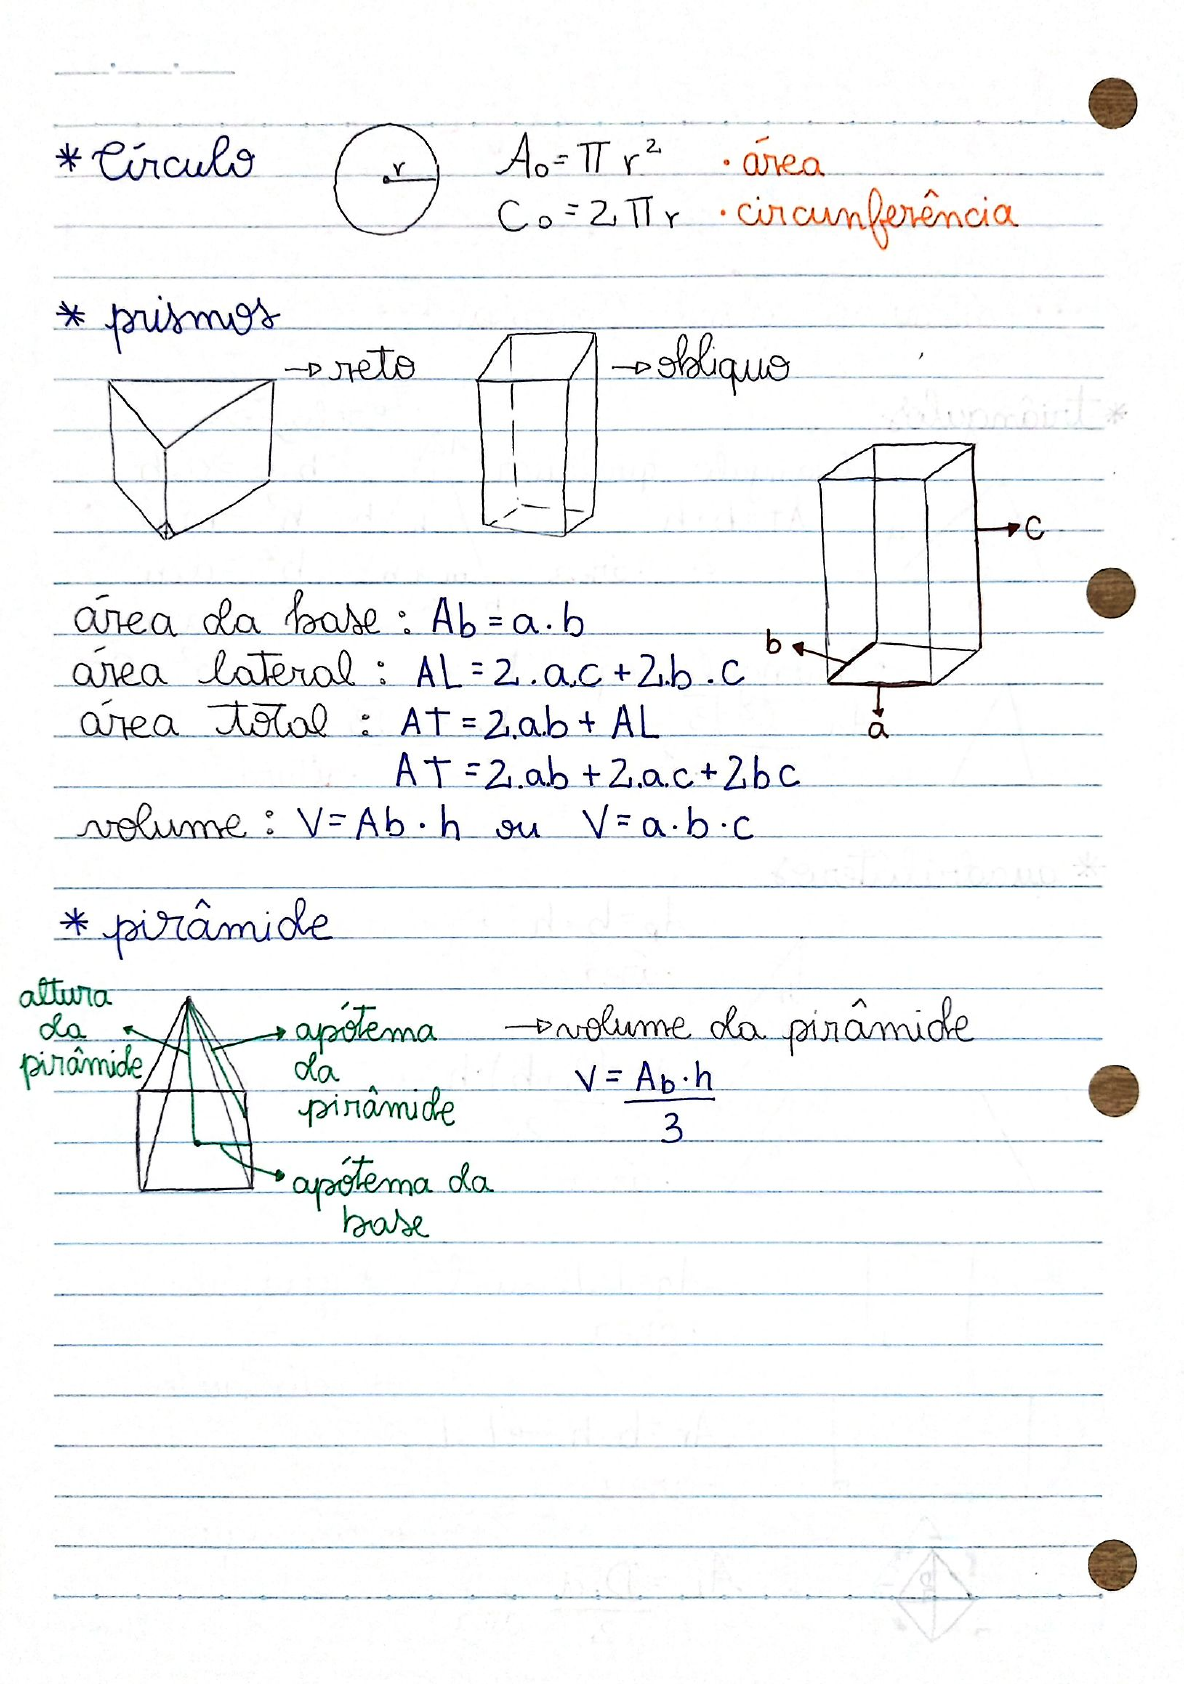 * Círculo
r
A₀ = π r² · área
C₀ = 2 π r · circunferência
* prismos
→ reto
→ obliquo
c
b
a
área da base : Ab = a · b
área lateral : AL = 2 . a.c + 2.b . c
área total : AT = 2.a.b + AL
AT = 2.ab + 2.a.c + 2bc
volume : V = Ab · h ou V = a · b · c
* pirâmide
altura
da
pirâmide
apótema
da
pirâmide
apótema da
base
→ volume da pirâmide
V = Ab · h
3